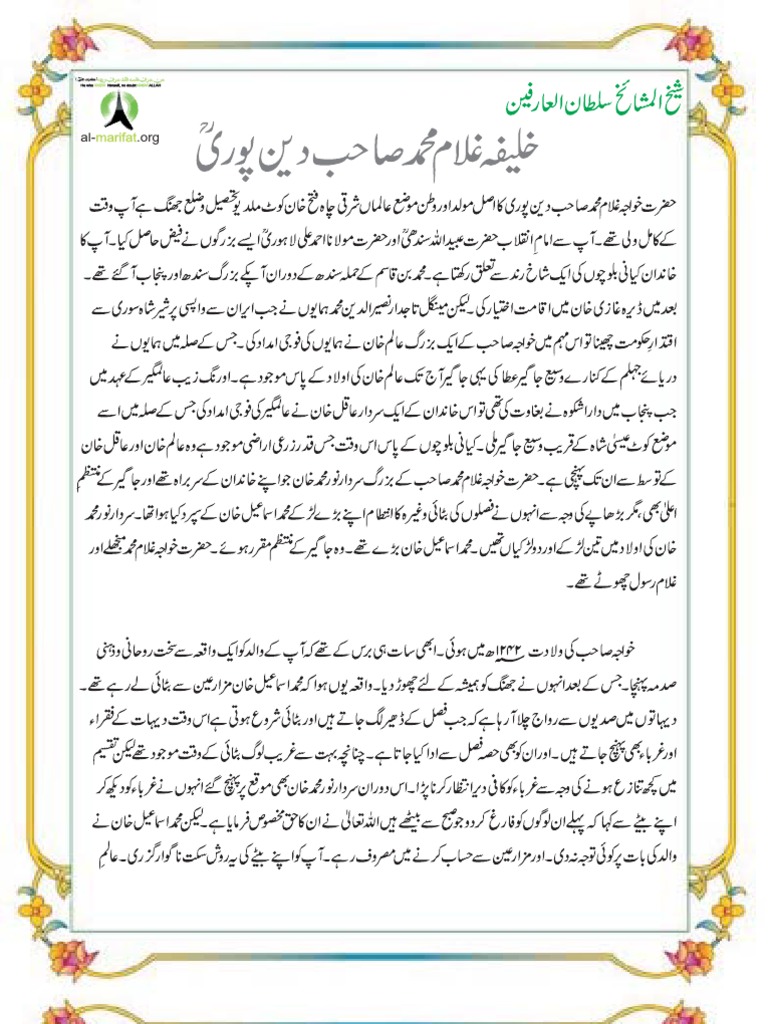 شیخ المشائخ سلطان العارفین
al-marifat.org
خلیفہ غلام محمد صاحب دین پوریؒ
حضرت خواجہ غلام محمد صاحب دین پوری کا اصل مولد اور وطن موضع عالماں شرقی چاہ فتح خان کوٹ ملدیو تحصیل و ضلع جھنگ ہے آپ وقت
کے کامل ولی تھے۔ آپ سے امام انقلاب حضرت عبید اللہ سندھیؒ اور حضرت مولانا احمد علی لاہوریؒ ایسے بزرگوں نے فیض حاصل کیا۔ آپ کا
خاندان کیانی بلوچوں کی ایک شاخ رند سے تعلق رکھتا ہے۔ محمد بن قاسم کے حملہ سندھ کے دوران آپکے بزرگ سندھ اور پنجاب آ گئے تھے۔
بعد میں ڈیرہ غازی خان میں اقامت اختیار کی۔ لیکن مینگل تاجدار نصیر الدین محمد ہمایوں نے جب ایران سے واپسی پر شیر شاہ سوری سے
اقتدار حکومت چھینا تو اس مہم میں خواجہ صاحب کے ایک بزرگ عالم خان نے ہمایوں کی فوجی امداد کی۔ جس کے صلہ میں ہمایوں نے
دریائے جہلم کے کنارے وسیع جاگیر عطا کی یہی جاگیر آج تک عالم خان کی اولاد کے پاس موجود ہے۔ اورنگ زیب عالمگیر کے عہد میں
جب پنجاب میں دارا شکوہ نے بغاوت کی تھی تو اس خاندان کے ایک سردار عاقل خان نے عالمگیر کی فوجی امداد کی جس کے صلہ میں اسے
موضع کوٹ عیسیٰ شاہ کے قریب وسیع جاگیر ملی۔ کیانی بلوچوں کے پاس اس وقت جس قدر زرعی اراضی موجود ہے وہ عالم خان اور عاقل خان
کے توسط سے ان تک پہنچی ہے۔ حضرت خواجہ غلام محمد صاحب کے بزرگ سردار نور محمد خان جو اپنے خاندان کے سربراہ تھے اور جاگیر کے منتظمِ
اعلیٰ بھی، مگر بڑھاپے کی وجہ سے انہوں نے فصلوں کی بٹائی وغیرہ کا انتظام اپنے بڑے لڑکے محمد اسماعیل خان کے سپرد کیا ہوا تھا۔ سردار نور محمد
خان کی اولاد میں تین لڑکے اور دو لڑکیاں تھیں۔ محمد اسماعیل خان بڑے تھے۔ وہ جاگیر کے منتظم مقرر ہوئے۔ حضرت خواجہ غلام محمد منجھلے اور
غلام رسول چھوٹے تھے۔
خواجہ صاحب کی ولادت ۱۲۴۲ھ میں ہوئی۔ ابھی سات ہی برس کے تھے کہ آپ کے والد کو ایک واقعہ سے سخت روحانی و ذہنی
صدمہ پہنچا۔ جس کے بعد انہوں نے جھنگ کو ہمیشہ کے لئے چھوڑ دیا۔ واقعہ یوں ہوا کہ محمد اسماعیل خان مزارعین سے بٹائی لے رہے تھے۔
دیہاتوں میں صدیوں سے رواج چلا آ رہا ہے کہ جب فصل کے ڈھیر لگ جاتے ہیں اور بٹائی شروع ہوتی ہے اس وقت دیہات کے فقراء
اور غرباء بھی پہنچ جاتے ہیں۔ اور ان کو بھی حصہ فصل سے ادا کیا جاتا ہے۔ چنانچہ بہت سے غریب لوگ بٹائی کے وقت موجود تھے لیکن تقسیم
میں کچھ تنازع ہونے کی وجہ سے غرباء کو کافی دیر انتظار کرنا پڑا۔ اس دوران سردار نور محمد خان بھی موقع پر پہنچ گئے انہوں نے غرباء کو دیکھ کر
اپنے بیٹے سے کہا کہ پہلے ان لوگوں کو فارغ کر دو جو صبح سے بیٹھے ہیں اللہ تعالیٰ نے ان کا حق مخصوص فرمایا ہے۔ لیکن محمد اسماعیل خان نے
والد کی بات پر کوئی توجہ نہ دی۔ اور مزارعین سے حساب کرنے میں مصروف رہے۔ آپ کو اپنے بیٹے کی یہ روش سکت ناگوار گزری۔ عالمِ